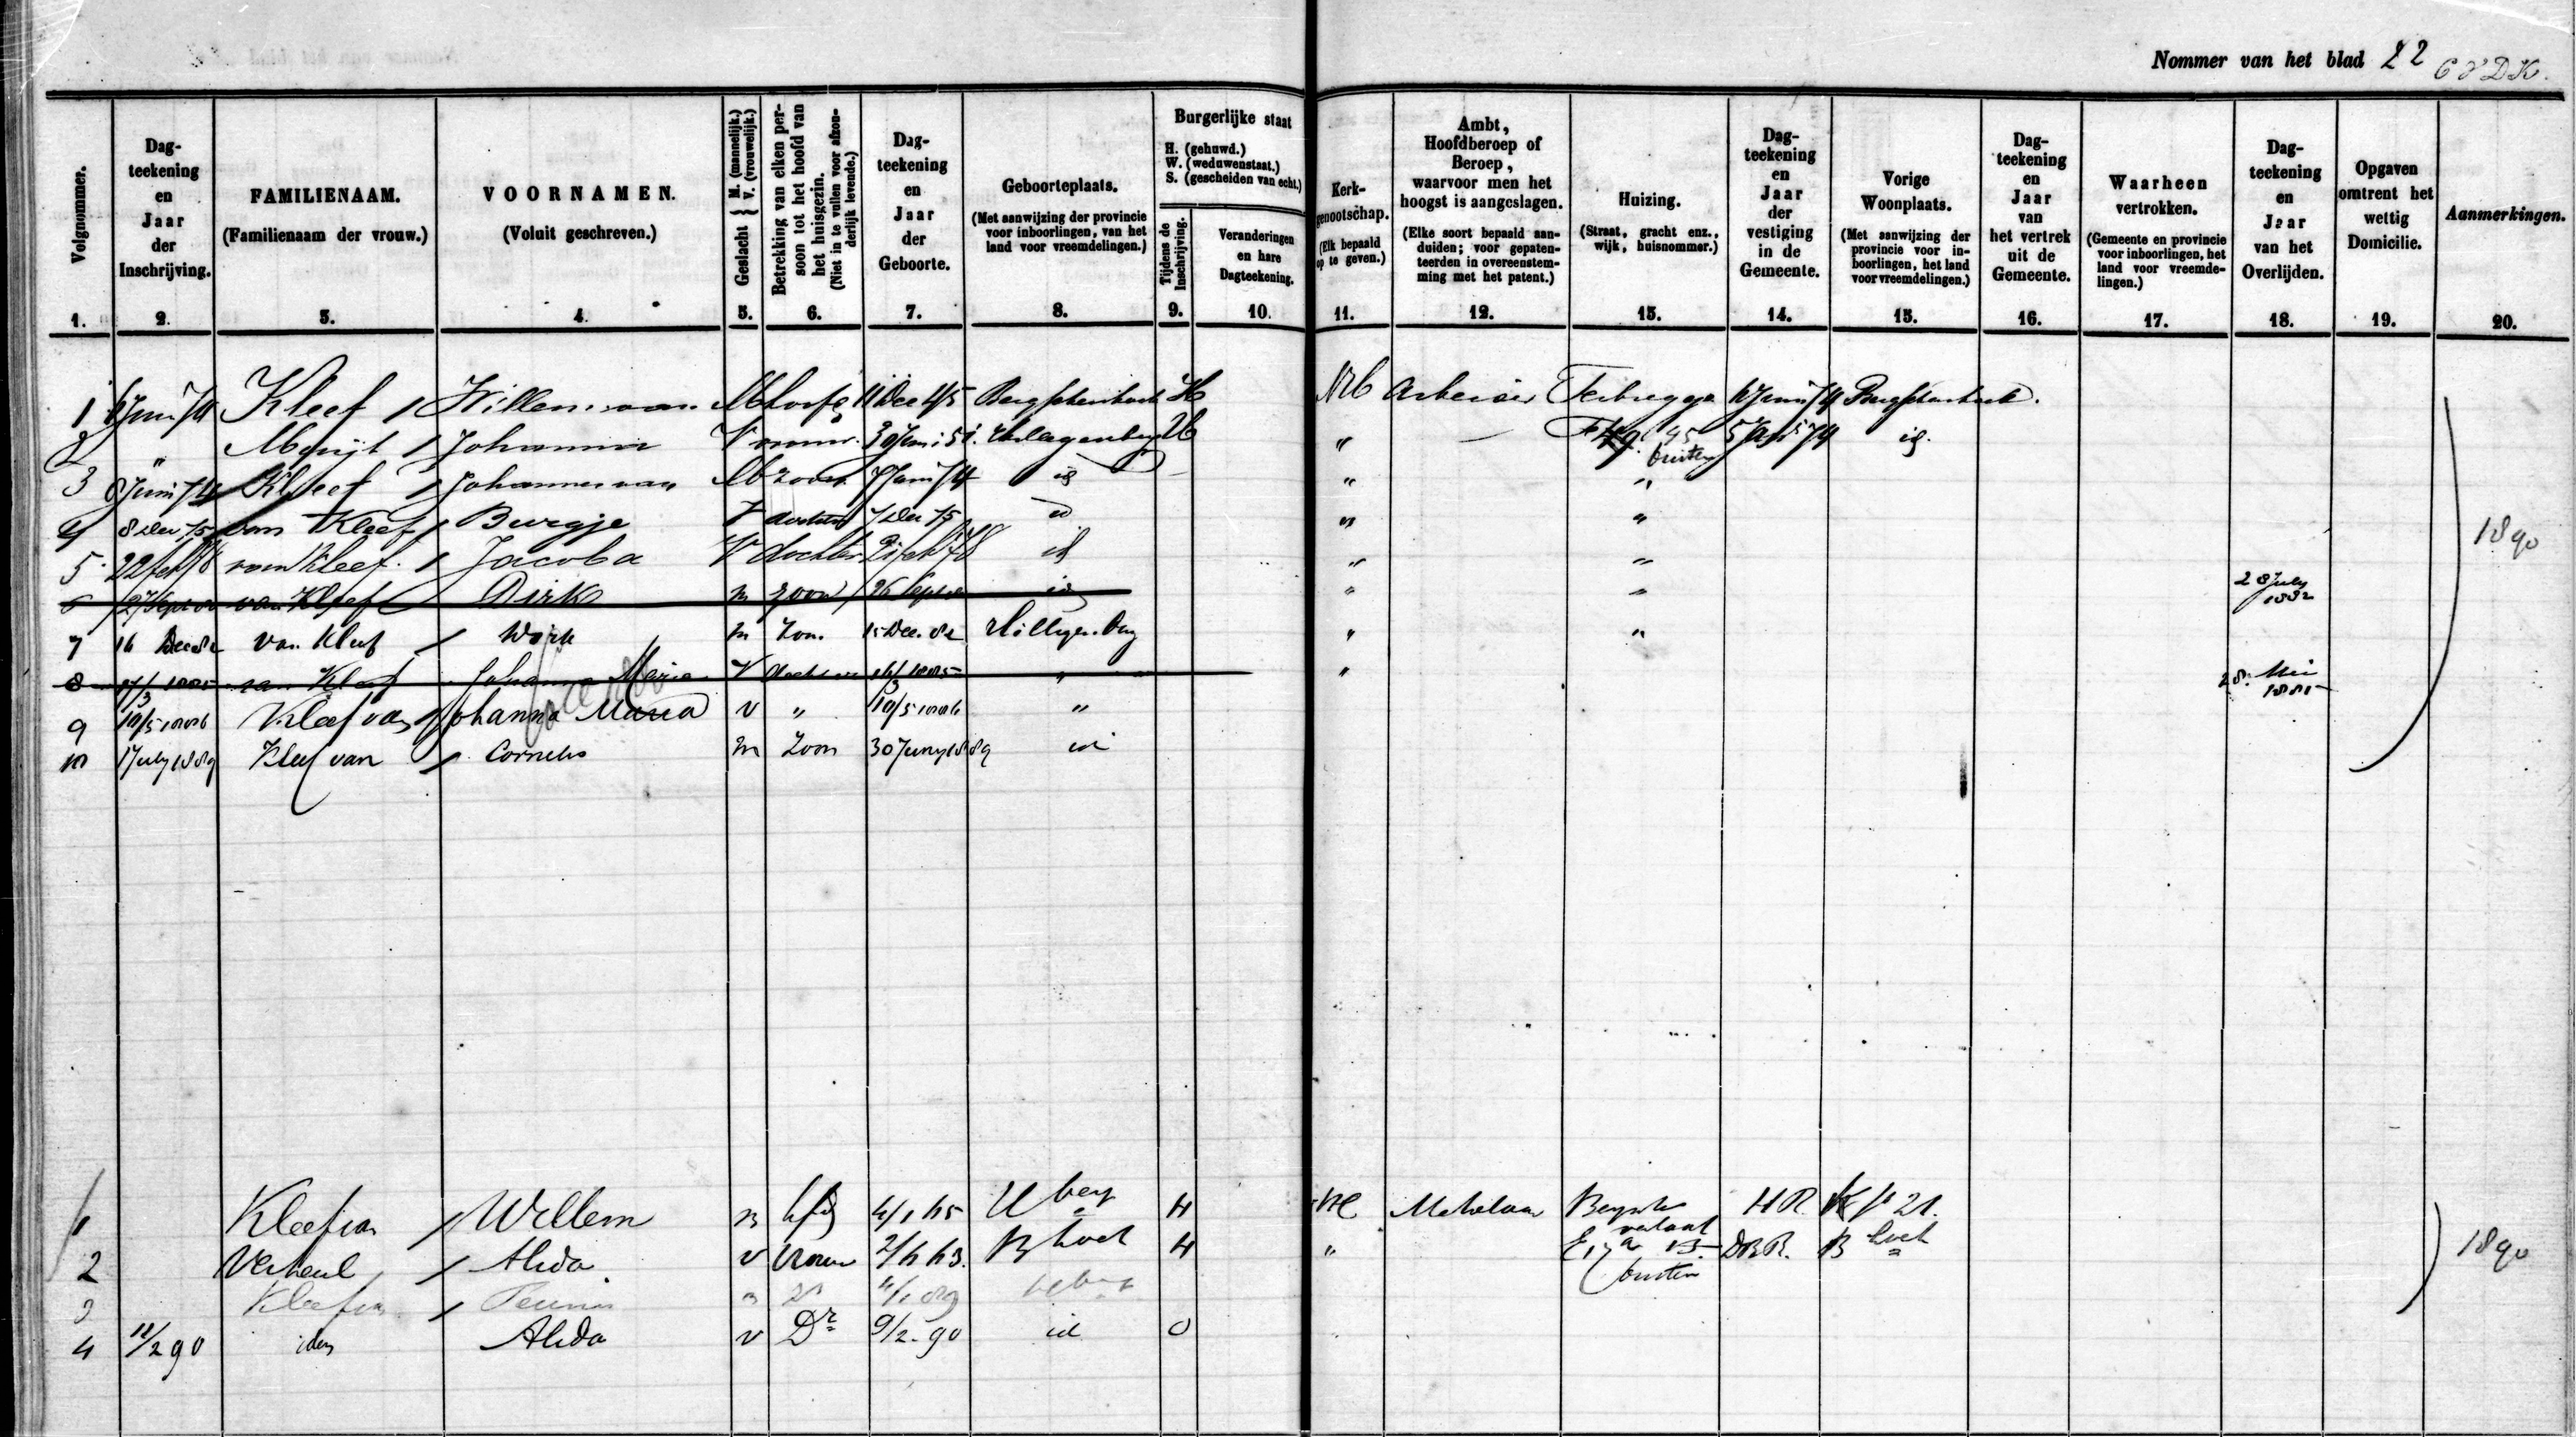 Nommer van het blad 22
Volgnommer. 1.
Dag-teekening en Jaar der Inschrijving. 2.
FAMILIENAAM. (Familienaam der vrouw.) 3.
VOORNAMEN. (Voluit geschreven.) 4.
Geslacht { M. (mannelijk.) V. (vrouwelijk.) 5.
Betrekking van elken persoon tot het hoofd van het huisgezin. (Niet in te vullen voor afzonderlijk levende.) 6.
Dag-teekening en Jaar der Geboorte. 7.
Geboorteplaats. (Met aanwijzing der provincie voor inboorlingen, van het land voor vreemdelingen.) 8.
Burgerlijke staat H. (gehuwd.) W. (weduwenstaat.) S. (gescheiden van echt.)
Tijdens de Inschrijving. 9.
Veranderingen en hare Dagteekening. 10.
Kerk-genootschap. (Elk bepaald op te geven.) 11.
Ambt, Hoofdberoep of Beroep, waarvoor men het hoogst is aangeslagen. (Elke soort bepaald aanduiden; voor gepatenteerden in overeenstemming met het patent.) 12.
Huizing. (Straat, gracht enz., wijk, huisnommer.) 13.
Dag-teekening en Jaar der vestiging in de Gemeente. 14.
Vorige Woonplaats. (Met aanwijzing der provincie voor inboorlingen, het land voor vreemdelingen.) 15.
Dag-teekening en Jaar van het vertrek uit de Gemeente. 16.
Waarheen vertrokken. (Gemeente en provincie voor inboorlingen, het land voor vreemdelingen.) 17.
Dag-teekening en Jaar van het Overlijden. 18.
Opgaven omtrent het wettig Domicilie. 19.
Aanmerkingen. 20.
1 6 Juni 74 Kleef / Willem van M hoofd 11 Dec 45 Bergschenhoek H NH Arbeider Terbregge 6 Juni 74 Bergschenhoek.
2 " / Johanna V vrouw 30 Juni 51 Hillegersberg H " buiten id.
3 8 Juni 74 Kleef / Johannes van M zoon 7 Juni 74 id " "
4 8 Dec 75 van Kleef / Burgje V dochter 7 Dec 75 id " "
5 22 feb 78 van Kleef / Jacoba V dochter 21 feb 78 id " "
6 27 Sept van Kleef / Dirk m zoon 26 Sept id " " 28 July 1882
7 16 Dec 82 van Kleef / Dirk m Zoon 15 Dec. 82 Hillegersberg " "
8 17/3 1885 van Kleef Johanna Maria V dochter 16/3 1885 " " 28 Mei 1885
9 19/5 1886 Kleef van / Johanna Maria v " " 
10 1 July 1889 Kleef van / Cornelis m Zoon 30 Juny 1889 id
1890
1 Kleef van / Willem m hfd 4/1 65 H berg H NH Metselaar HR 21.
2 Verheul / Alida v Vrouw 2/6 63. B hoek H " buiten B hoek
3 Kleef van / Teunis m Zn 4/1 89 H berg
4 11/2 90 idem Alida v Dr 9/2 - 90 id O
1890